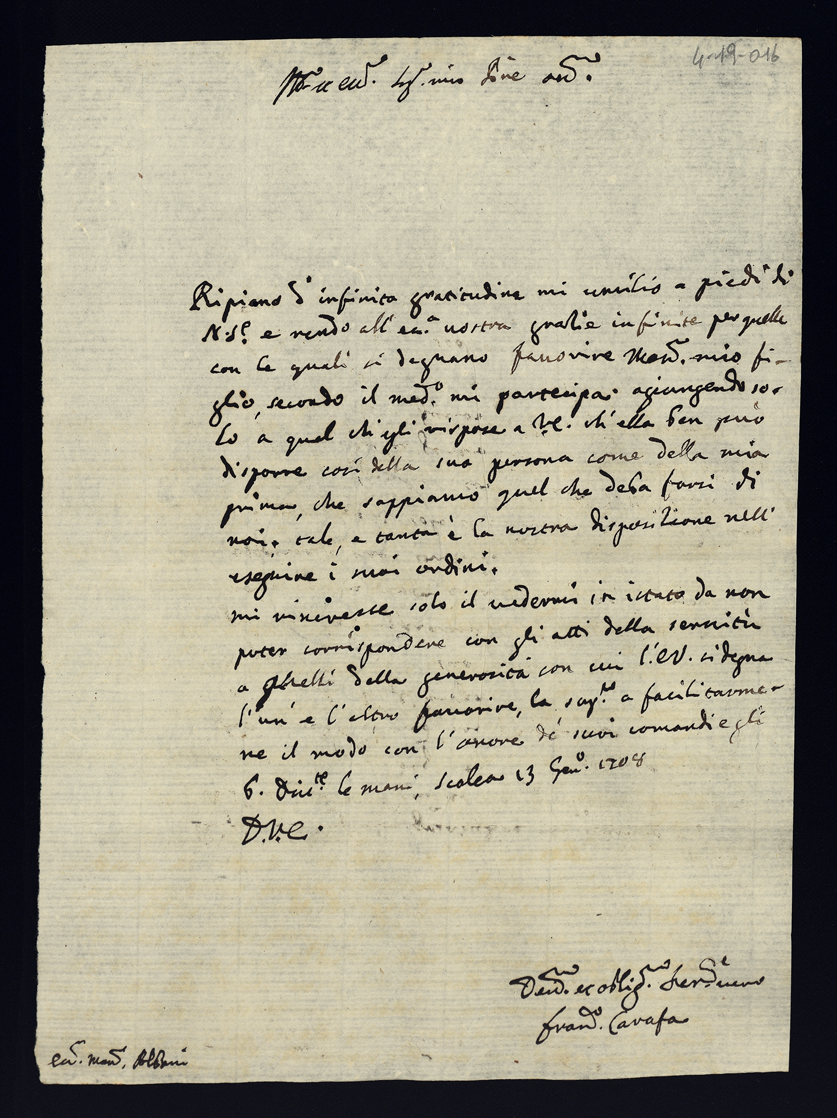 4-19-016
Sig.r mio P.ne
Ripieno d'infinita gratitudine mi umilio a piedi di
N. S.re e rendo all' ecc.a vostra gratie infinite per quelle
con le quali si degnano favorire Mons.r mio fi-
glio, secondo il med.o mi partecipa: agiungendo so-
lo a quel ch'egli rispose a V.E. ch'ella ben può
disporre così della sua persona come della mia
prima, che sappiamo quel che deba farsi di
noi. tale, e tanta è la nostra dispositione nell'
eseguire i suoi ordini.
mi rincresce solo il vedermi in istato da non
poter corrispondere con gli atti della servitù
a quelli della generosità con cui l'E.V. si degna
l'un' e l'altro favorire, la sup.co a facilitarme-
ne il modo con l'onore de' suoi comandi e gli
b. le mani, Scalea 13 Gen.o 1708
D.V.E.
Dev.mo et oblig.mo Ser.re vero
Fran.co Carafa
Mons.r Albani